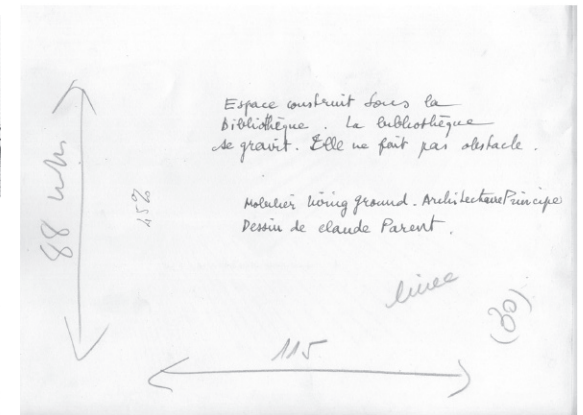 Espace construit sous la
Bibliothèque. La bibliothèque
se gravit. Elle ne fait pas obstacle.
Mobilier living ground. Architecture Principe
Dessin de claude Parent.
88 m/m
45%
115
(30)